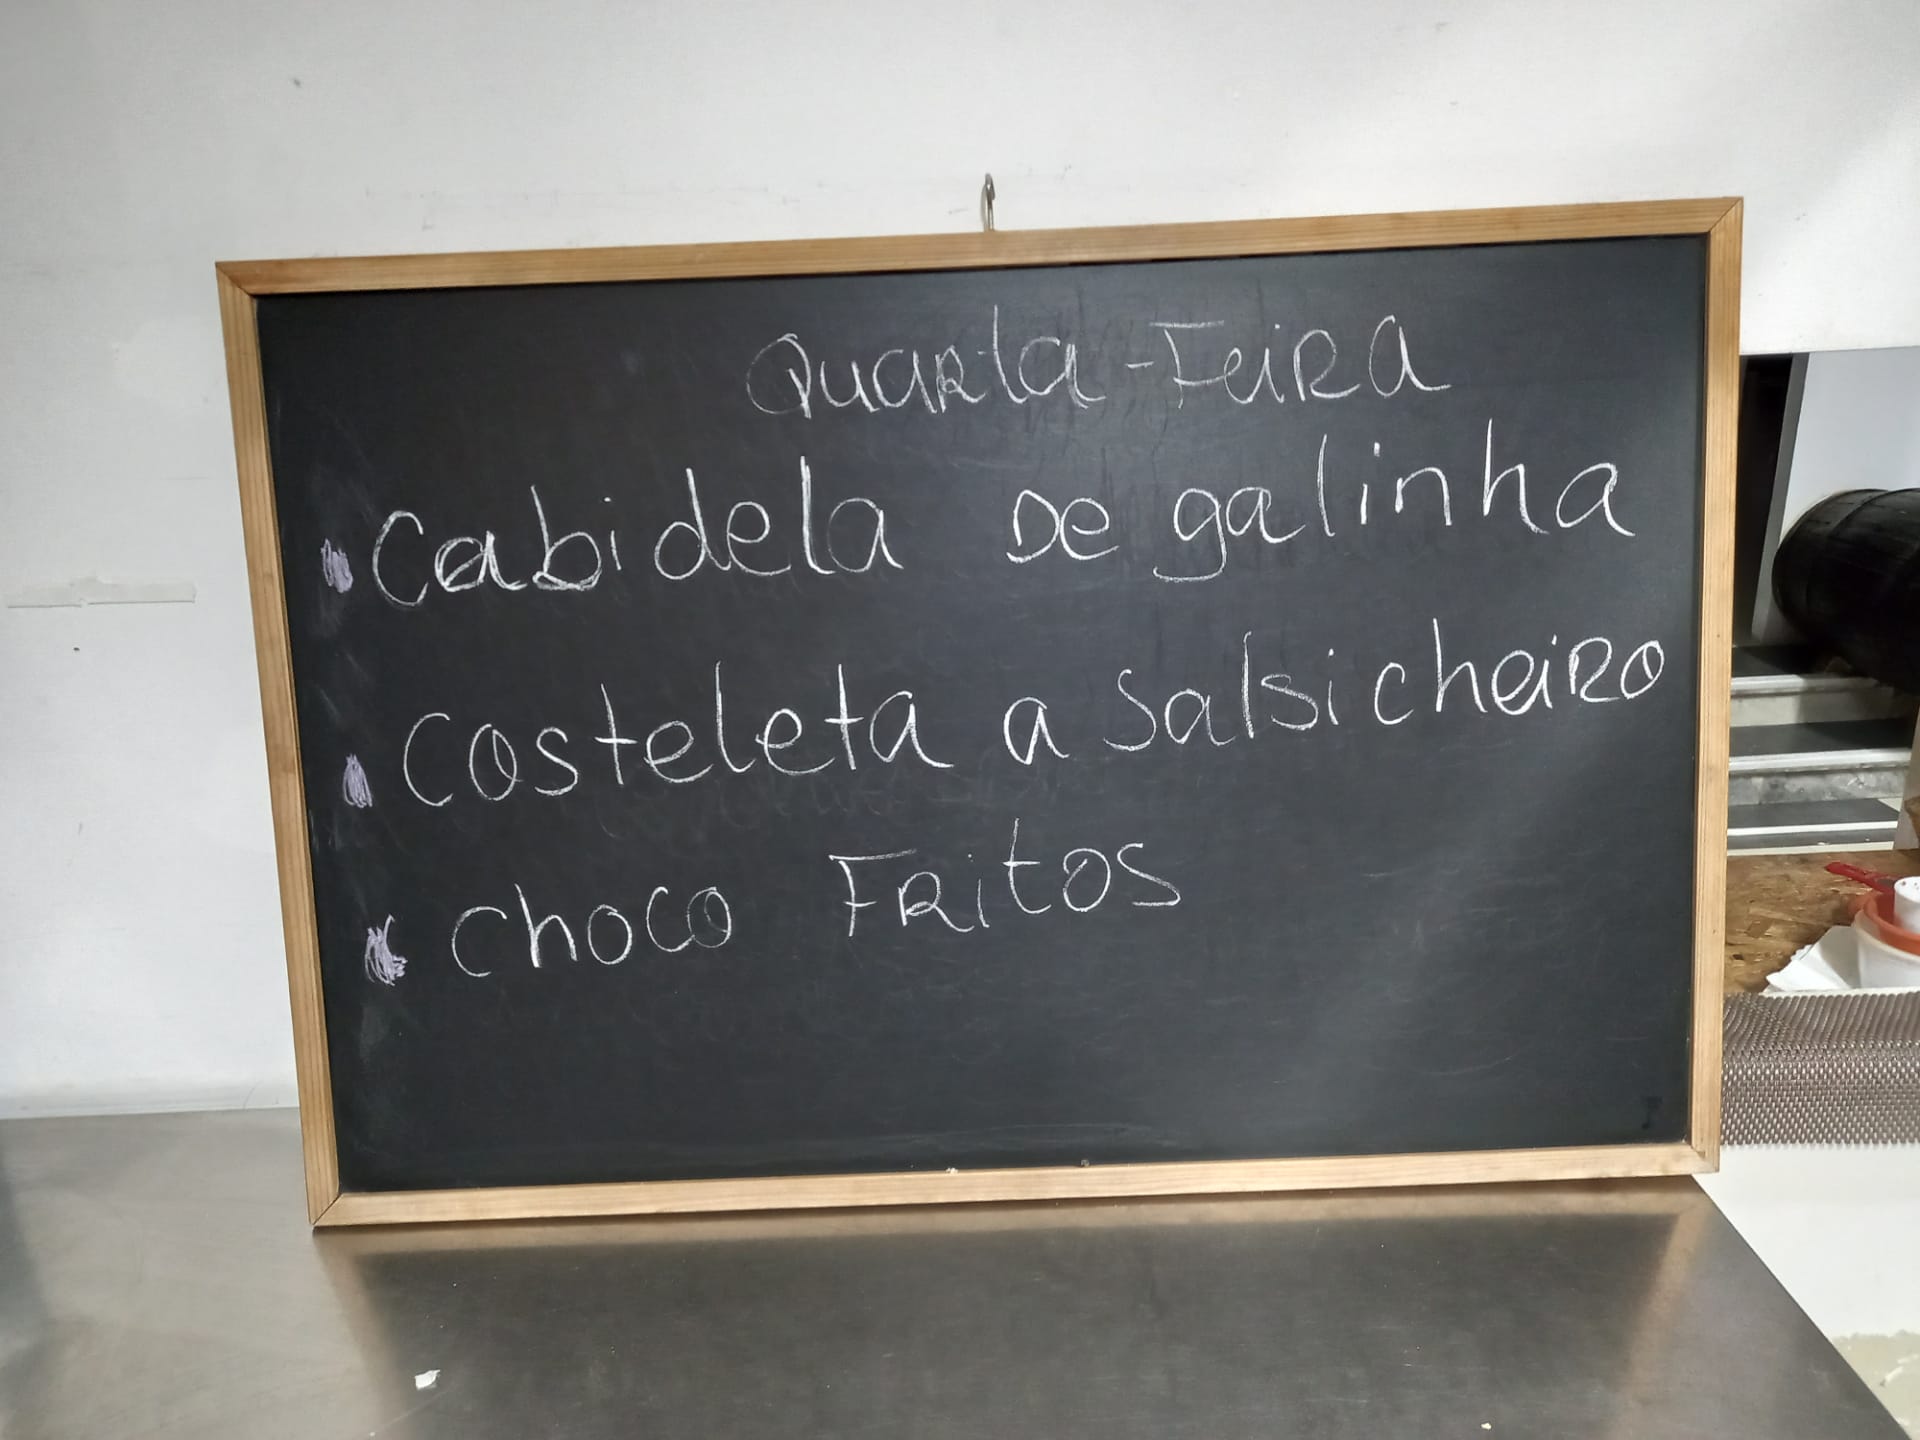 Quarta-Feira
Cabidela De galinha
Costeleta a Salsicheiro
choco Fritos